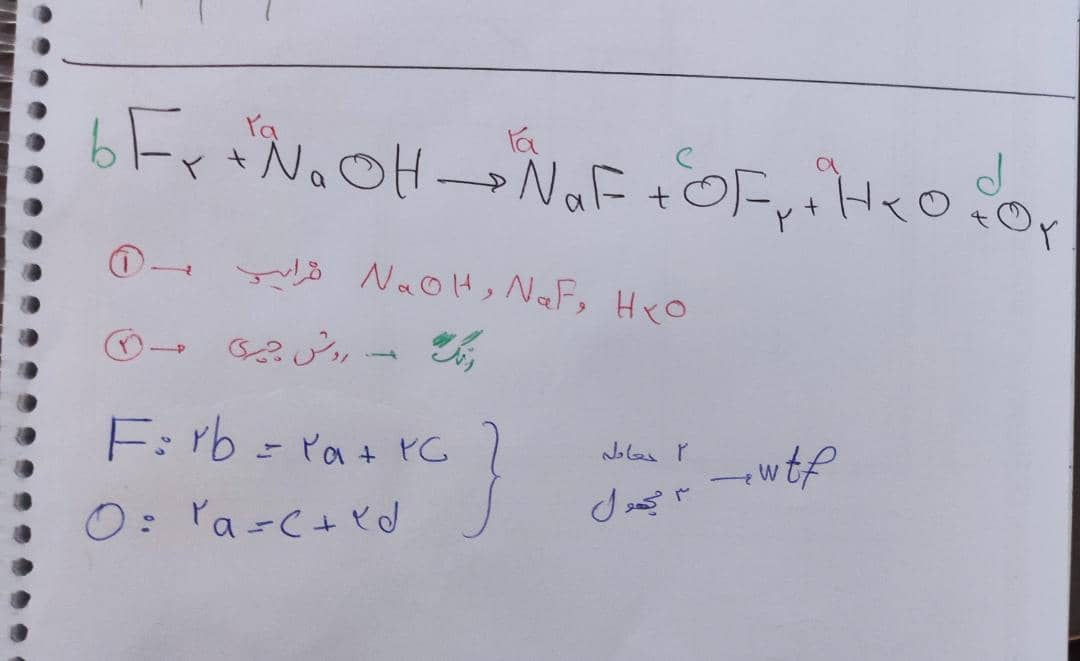 bF۲ + ۲aNaOH → ۲aNaF + cOF۲ + aH۲O + dO۲
① → ضرایب NaOH, NaF, H۲O
② → روش جبری → رنگ
F: ۲b = ۲a + ۲c
O: ۲a = c + ۲d
۲ معادله
۳ مجهول
→ wtf